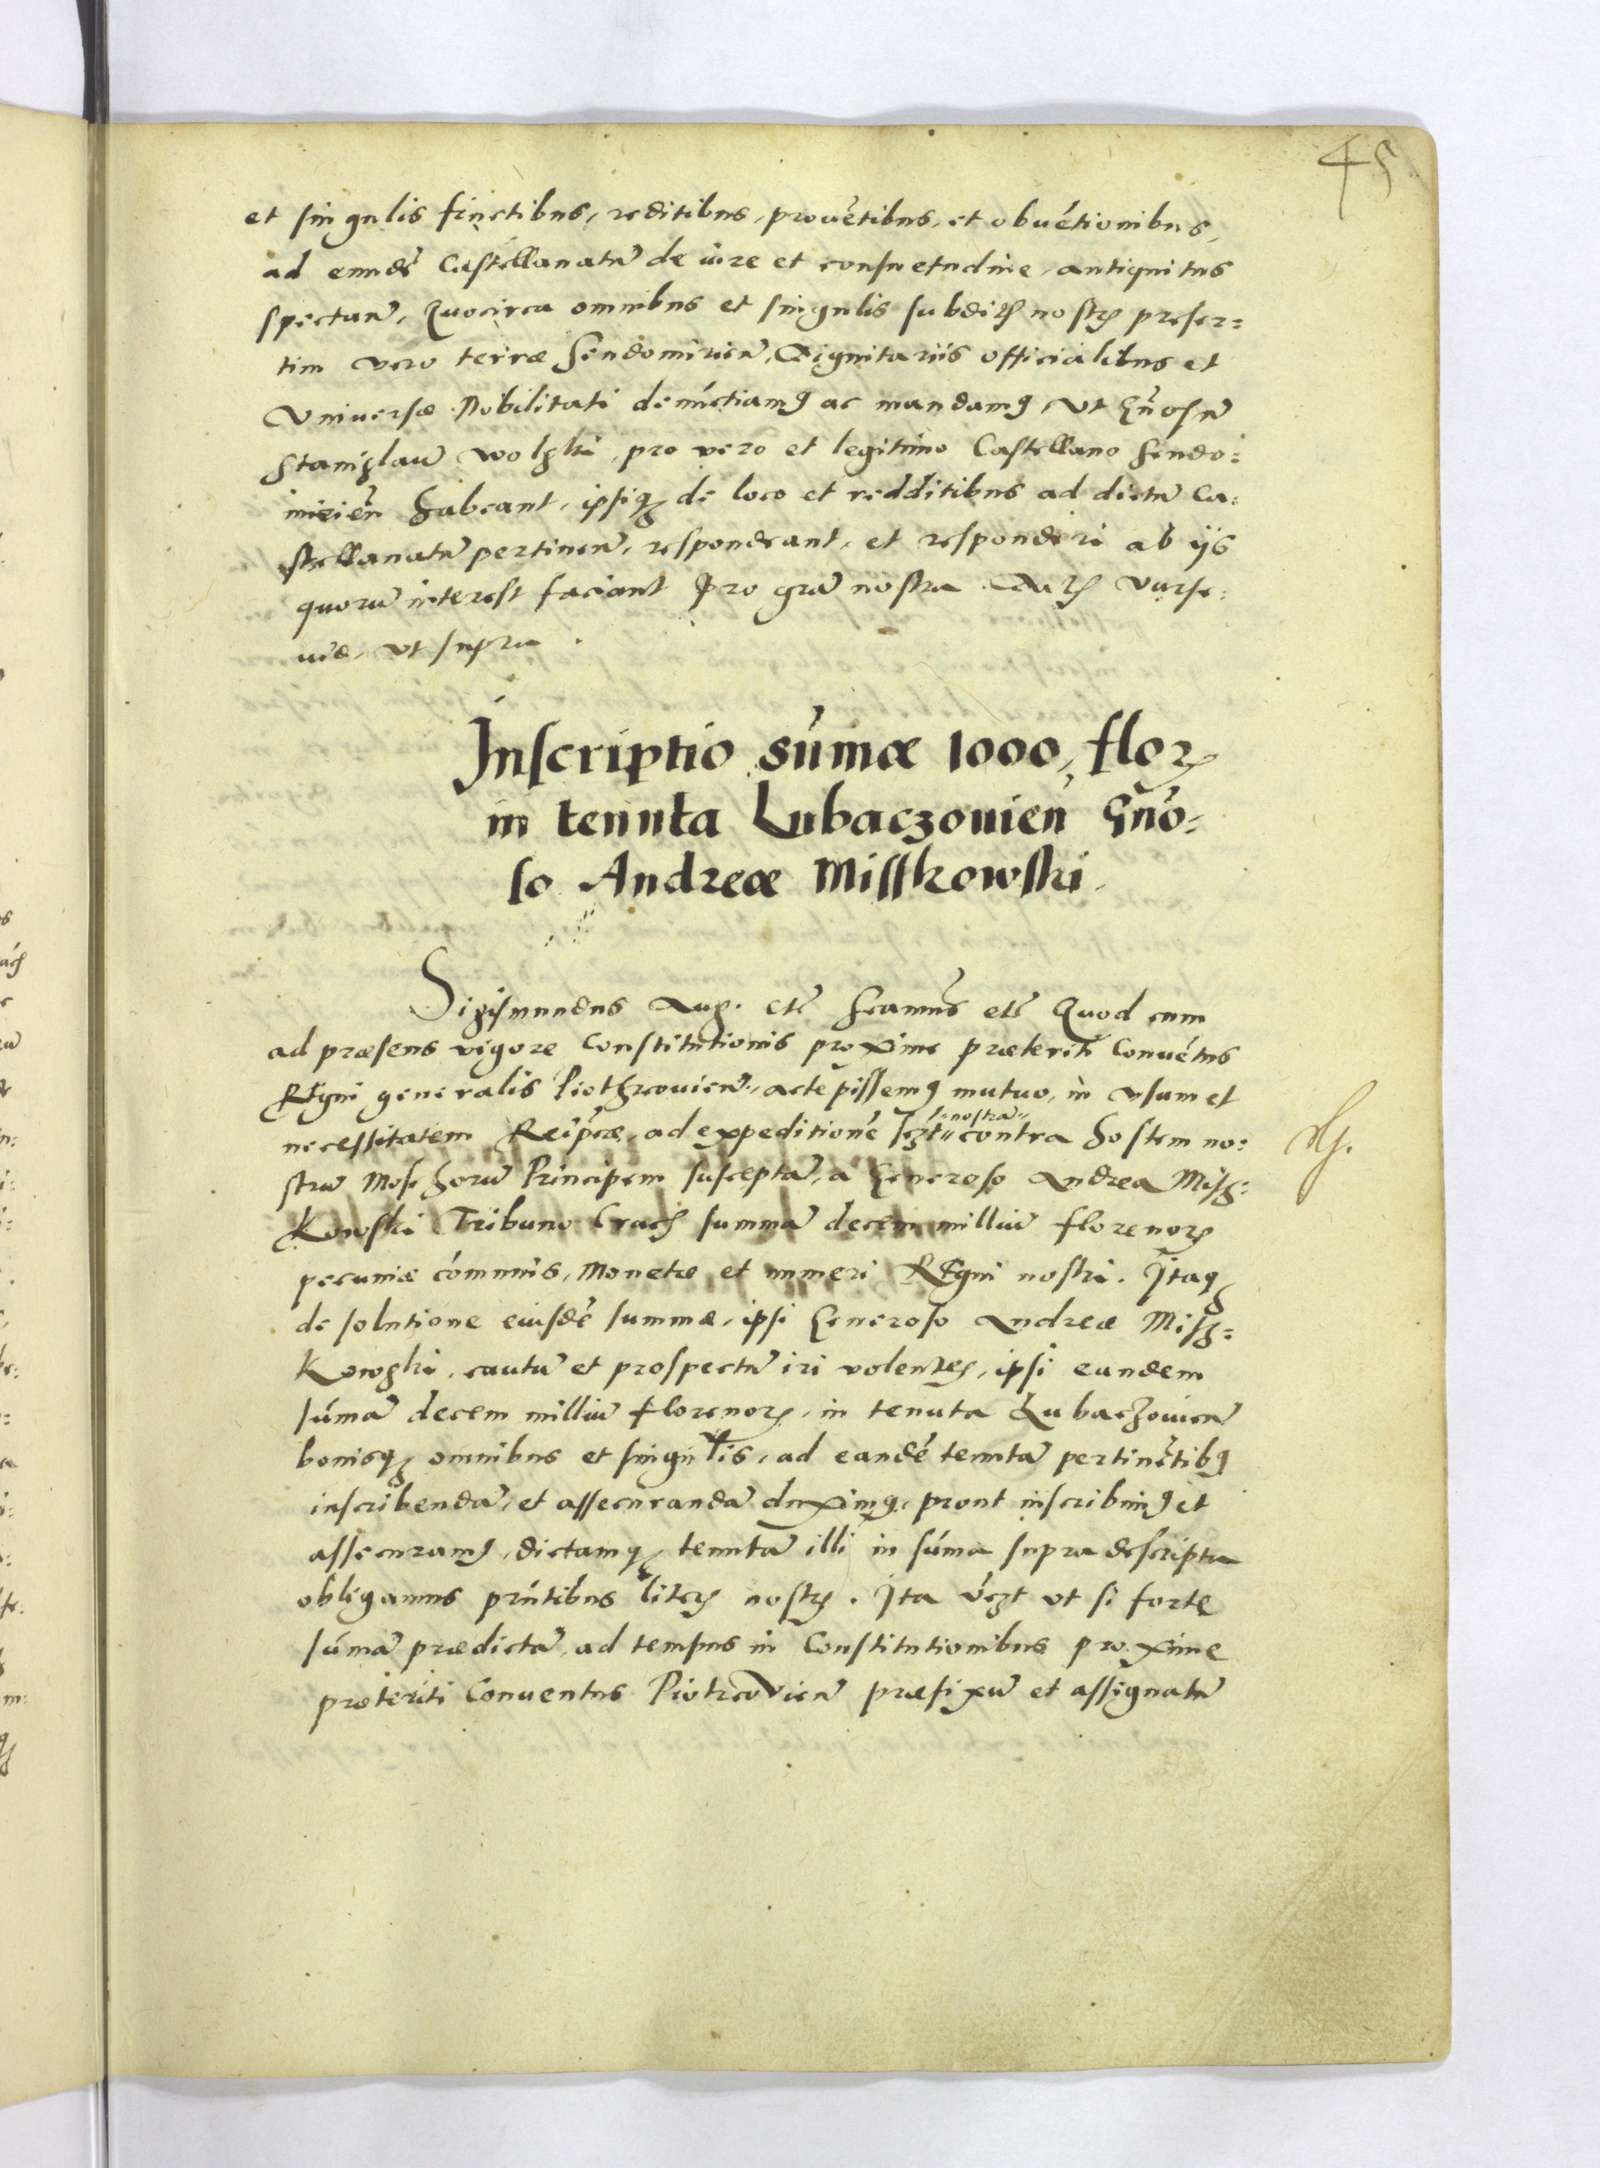 45
et singulis fructibus, reditibus, prouētibus, et obuētionibus,
ad eundē Castellanatū de iure et consuetudine, antiquitus
spectan̄. Quocirca omnibus et singulis subditꝭ nostrꝭ preser=
tim vero terræ Sendomirien̄, Dignitariis officialibus et
Vniversæ Nobilitati denūctiamꝰ ac mandamꝰ, vt Gn̄osū
Stanislaū Wolski, pro vero et legitimo Castellano Sendo=
mirien̄ habeant, ipsiqꝫ de loco et redditibus ad dictū Ca=
stellanatū pertinen̄, respondeant, et responderi ab iis
quorū interest faciant Pro grā nostra. Datꝭ Varse=
uiæ, vt supra.
Inscriptio sūmæ 1000, florꝭ
in tenuta Lubaczouien̄ Gn̄o=
so Andreæ Misskowski
Sigismundus Aug. etc̄ Seamus̄ etc̄ Quod cum
ad præsens vigore Constitutionis proxime præteriti Conuētus
Regni generalis Piothrcouien̄, accepissemꝰ mutuo, in vsum et
necessitatem Reip̄cæ, ad expeditionē sczt "nostrā" contra hostem no=
strū Moschorū Principem susceptā, a Generoso Andrea Misz=
Kowski Tribuno Cracꝭ summā decem milliū florenorꝭ
pecuniæ cōmunis, Monetæ et numeri Regni nostri. Itaqꝫ
de solutione eiusdē summæ, ipsi Generoso Andreæ Misz=
Kowski, cautū et prospectū iri volentes, ipsi eandem
sūmā decem milliū florenorꝭ, in tenuta Lubaczouien̄
bonisqꝫ omnibus et singulis, ad eandē tenutā pertinētibꝰ
inscribendā, et assecurandā duximꝰ, prout inscribimꝰ et
assecuramꝰ, dictamqꝫ tenutā illi in sūma supra descripta
obligamus pn̄tibus litrꝭ nostrꝭ. Ita vczt vt si forte
sūmā prædictā, ad tempus in Constitutionibus proxime
præteriti Conuentus Piotrcovien̄ præfixū et assignatū